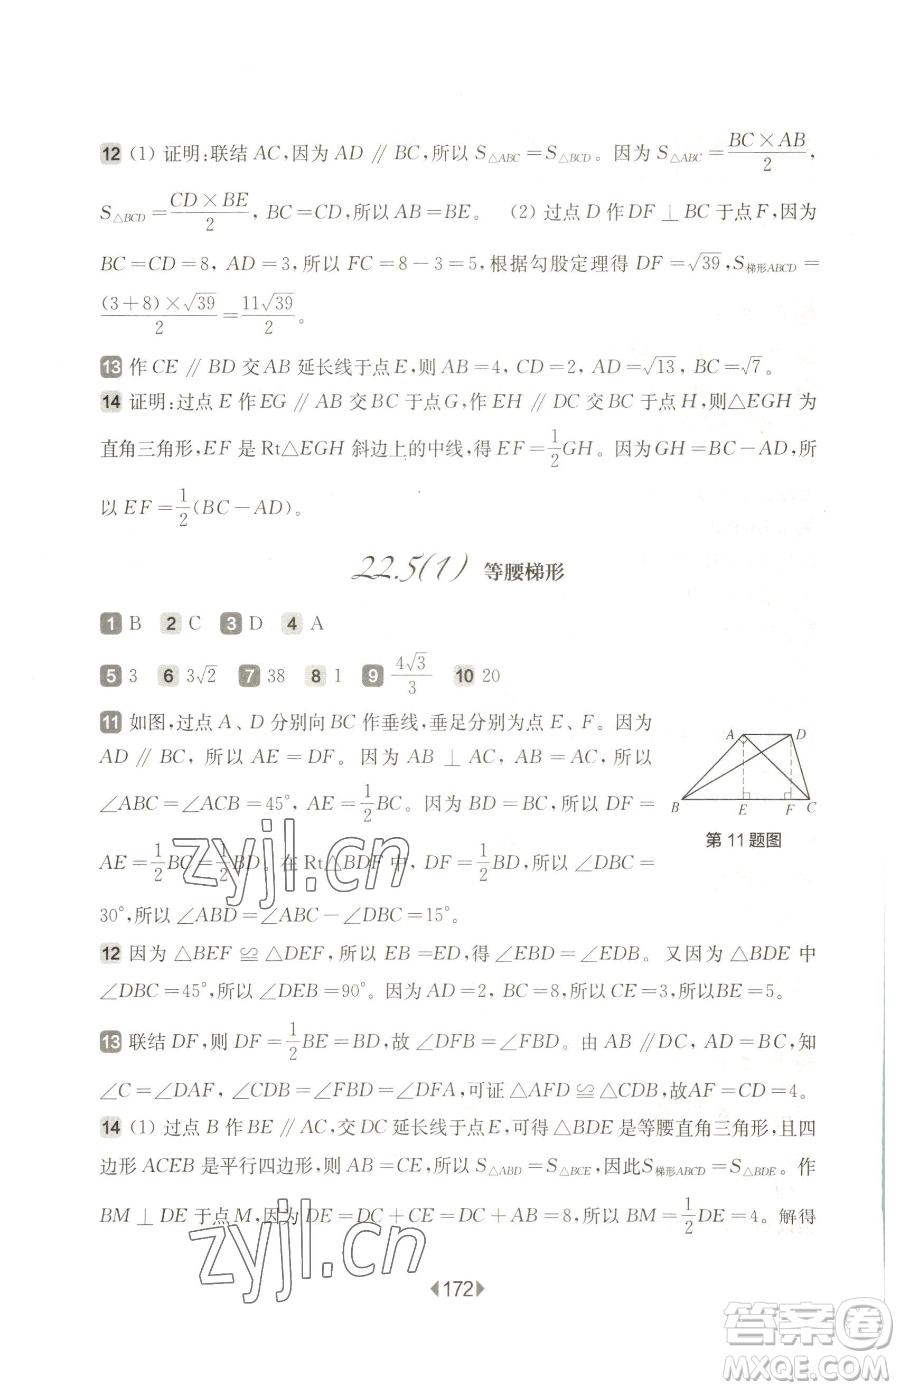 12 (1) 证明:联结 AC,因为 AD ∥ BC,所以 S△ABC=S△BCD。因为 S△ABC=\frac{BC×AB}{2},
S△BCD=\frac{CD×BE}{2}, BC=CD,所以 AB=BE。 (2) 过点 D 作 DF ⊥ BC 于点 F,因为
BC=CD=8, AD=3,所以 FC=8-3=5,根据勾股定理得 DF=√39,S梯形ABCD=
\frac{(3+8)×√39}{2}=\frac{11√39}{2}。
13 作 CE ∥ BD 交 AB 延长线于点 E,则 AB=4, CD=2, AD=√13, BC=√7。
14 证明:过点 E 作 EG ∥ AB 交 BC 于点 G,作 EH ∥ DC 交 BC 于点 H,则△EGH 为
直角三角形,EF 是 Rt△EGH 斜边上的中线,得 EF=\frac{1}{2}GH。因为 GH=BC-AD,所
以 EF=\frac{1}{2}(BC-AD)。
22.5(1) 等腰梯形
1 B 2 C 3 D 4 A
5 3 6 3√2 7 38 8 1 9 \frac{4√3}{3} 10 20
11 如图,过点 A、D 分别向 BC 作垂线,垂足分别为点 E、F。因为
AD ∥ BC, 所以 AE=DF。因为 AB ⊥ AC, AB=AC, 所以
∠ABC=∠ACB=45°, AE=\frac{1}{2}BC。因为 BD=BC,所以 DF=
AE=\frac{1}{2}BC=\frac{1}{2}BD。在 Rt△BDF 中, DF=\frac{1}{2}BD,所以 ∠DBC=
30°,所以 ∠ABD=∠ABC-∠DBC=15°。
A D B E F C
第 11 题图
12 因为 △BEF ≌ △DEF,所以 EB=ED,得 ∠EBD=∠EDB。又因为 △BDE 中
∠DBC=45°,所以 ∠DEB=90°。因为 AD=2, BC=8,所以 CE=3,所以BE=5。
13 联结 DF,则 DF=\frac{1}{2}BE=BD,故 ∠DFB=∠FBD。由 AB ∥ DC, AD=BC,知
∠C=∠DAF, ∠CDB=∠FBD=∠DFA,可证 △AFD ≌ △CDB,故AF=CD=4。
14 (1) 过点 B 作 BE ∥ AC,交 DC 延长线于点 E,可得 △BDE 是等腰直角三角形,且四
边形 ACEB 是平行四边形,则 AB=CE,所以 S△ABD=S△BCE,因此S梯形ABCD=S△BDE。作
BM ⊥ DE 于点 M,因为 DE=DC+CE=DC+AB=8,所以 BM=\frac{1}{2}DE=4。解得
172
zyjl.cn
zyjl.cn
答案圈
MXQE.COM